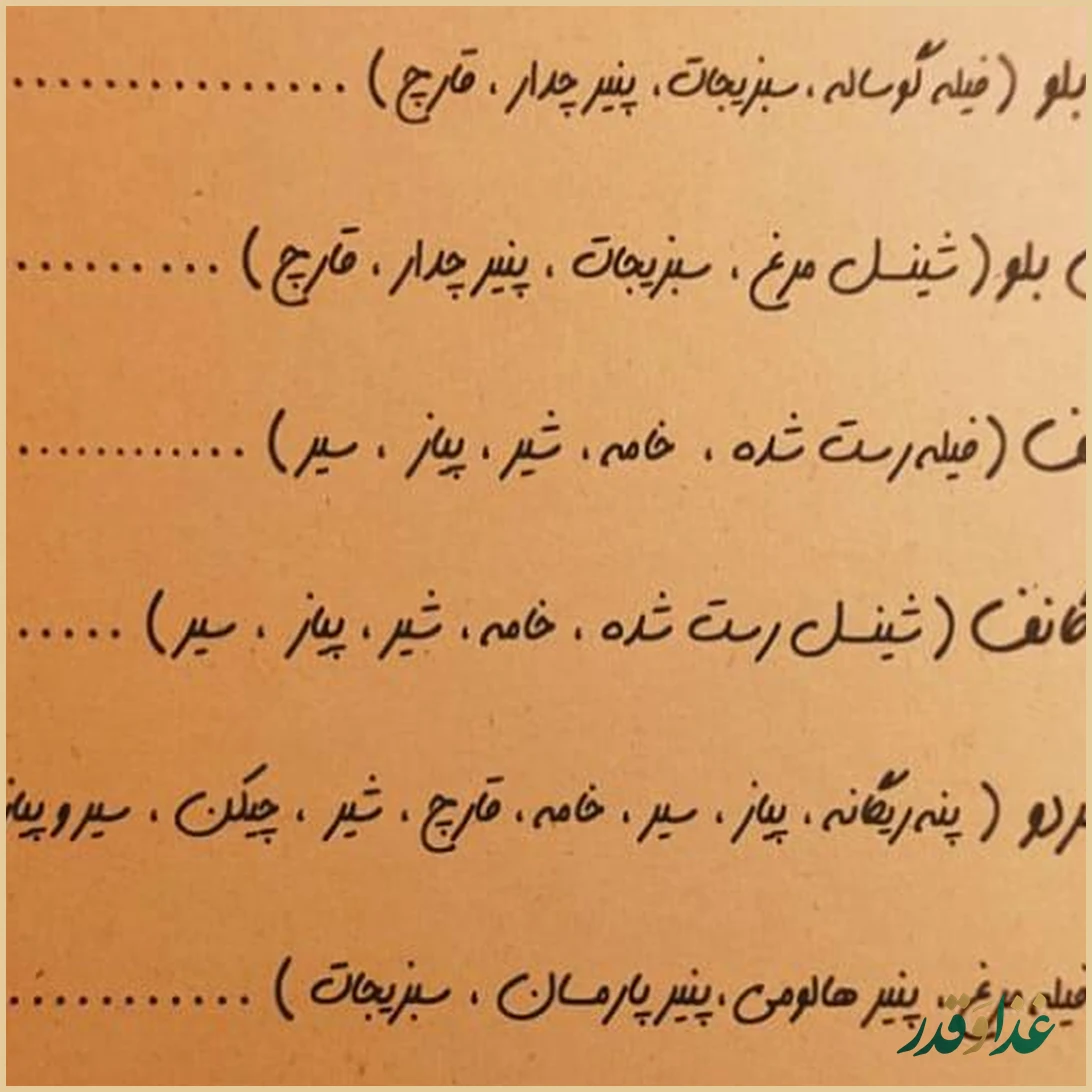 بلو (فیله گوساله، سبزیجات، پنیر چدار، قارچ) ................
بلو (شینسل مرغ، سبزیجات، پنیر چدار، قارچ) ..........
(فیله رست شده، خامه، شیر، پیاز، سیر) ............
(شینسل رست شده، خامه، شیر، پیاز، سیر) .....
(پنه ریگانه، پیاز، سیر، خامه، قارچ، شیر، چیکن، سیر و پیاز
فیله مرغ، پنیر هالومی، پنیر پارمسان، سبزیجات) ............
غذا و قدر